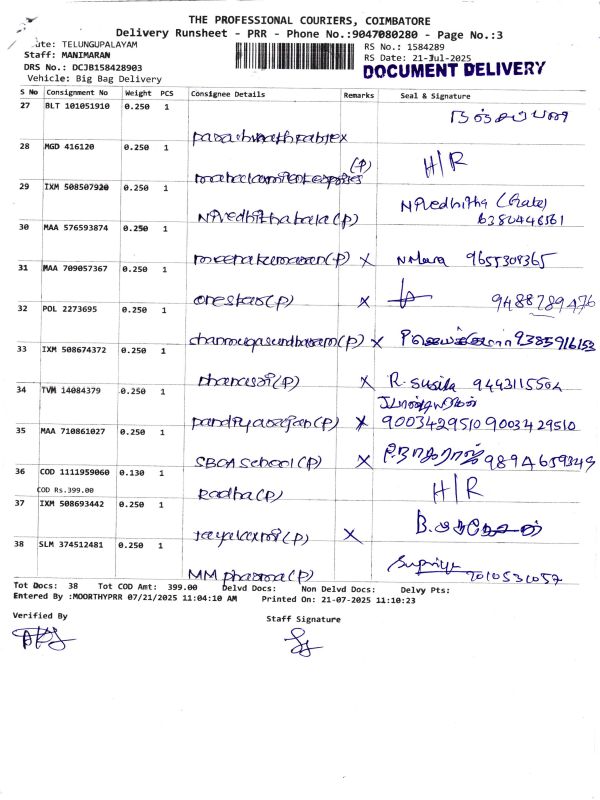 THE PROFESSIONAL COURIERS, COIMBATORE
Delivery Runsheet - PRR - Phone No.:9047080280 - Page No.:3
ute: TELUNGUPALAYAM
RS No.: 1584289
Staff: MANIMARAN
RS Date: 21-Jul-2025
DRS No.: DCJB158428903
DOCUMENT DELIVERY
Vehicle: Big Bag Delivery
S No Consignment No Weight PCS Consignee Details Remarks Seal & Signature
27 BLT 101051910 0.250 1
28 MGD 416120 0.250 1 (P) H/R
29 IXM 508507920 0.250 1 Nivedhithabala (P) Nivedhitha
6380446561
30 MAA 576593874 0.250 1 meenakumaran (P) X 9655309365
31 MAA 709057367 0.250 1 onestar (P) X 9488789476
32 POL 2273695 0.250 1 (P) X 9385916153
33 IXM 508674372 0.250 1 (P) X R. Susila 9443115504
34 TVM 14084379 0.250 1 pandiyarajan (P) X 9003429510 9003429510
35 MAA 710861027 0.250 1 SBOA School (P) X 9894659349
36 COD 1111959060 0.130 1 Radha (P) H/R
COD Rs.399.00
37 IXM 508693442 0.250 1 Jayalaxmi (P) X
38 SLM 374512481 0.250 1 MM pharma (P) Supriya 7010531057
Tot Docs: 38 Tot COD Amt: 399.00 Delvd Docs: Non Delvd Docs: Delvy Pts:
Entered By :MOORTHYPRR 07/21/2025 11:04:10 AM Printed On: 21-07-2025 11:10:23
Verified By Staff Signature